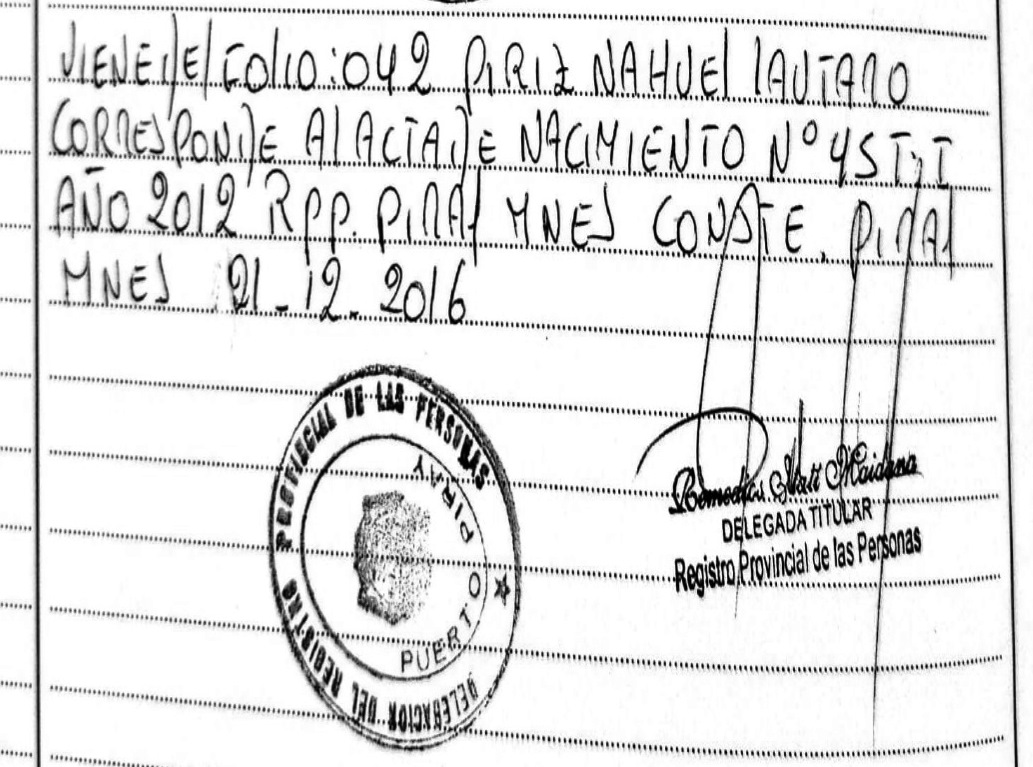 VIENE DEL FOLIO: 042 PIRIZ NAHUEL LAUTARO
CORRESPONDE AL ACTA DE NACIMIENTO Nº 45 T: I
AÑO 2012 RPP. PIRAY MNES CONSTE. PIRAY
MNES 21-12-2016
DELEGACION DEL REGISTRO PROVINCIAL DE LAS PERSONAS
PUERTO PIRAY
Maidana
DELEGADA TITULAR
Registro Provincial de las Personas